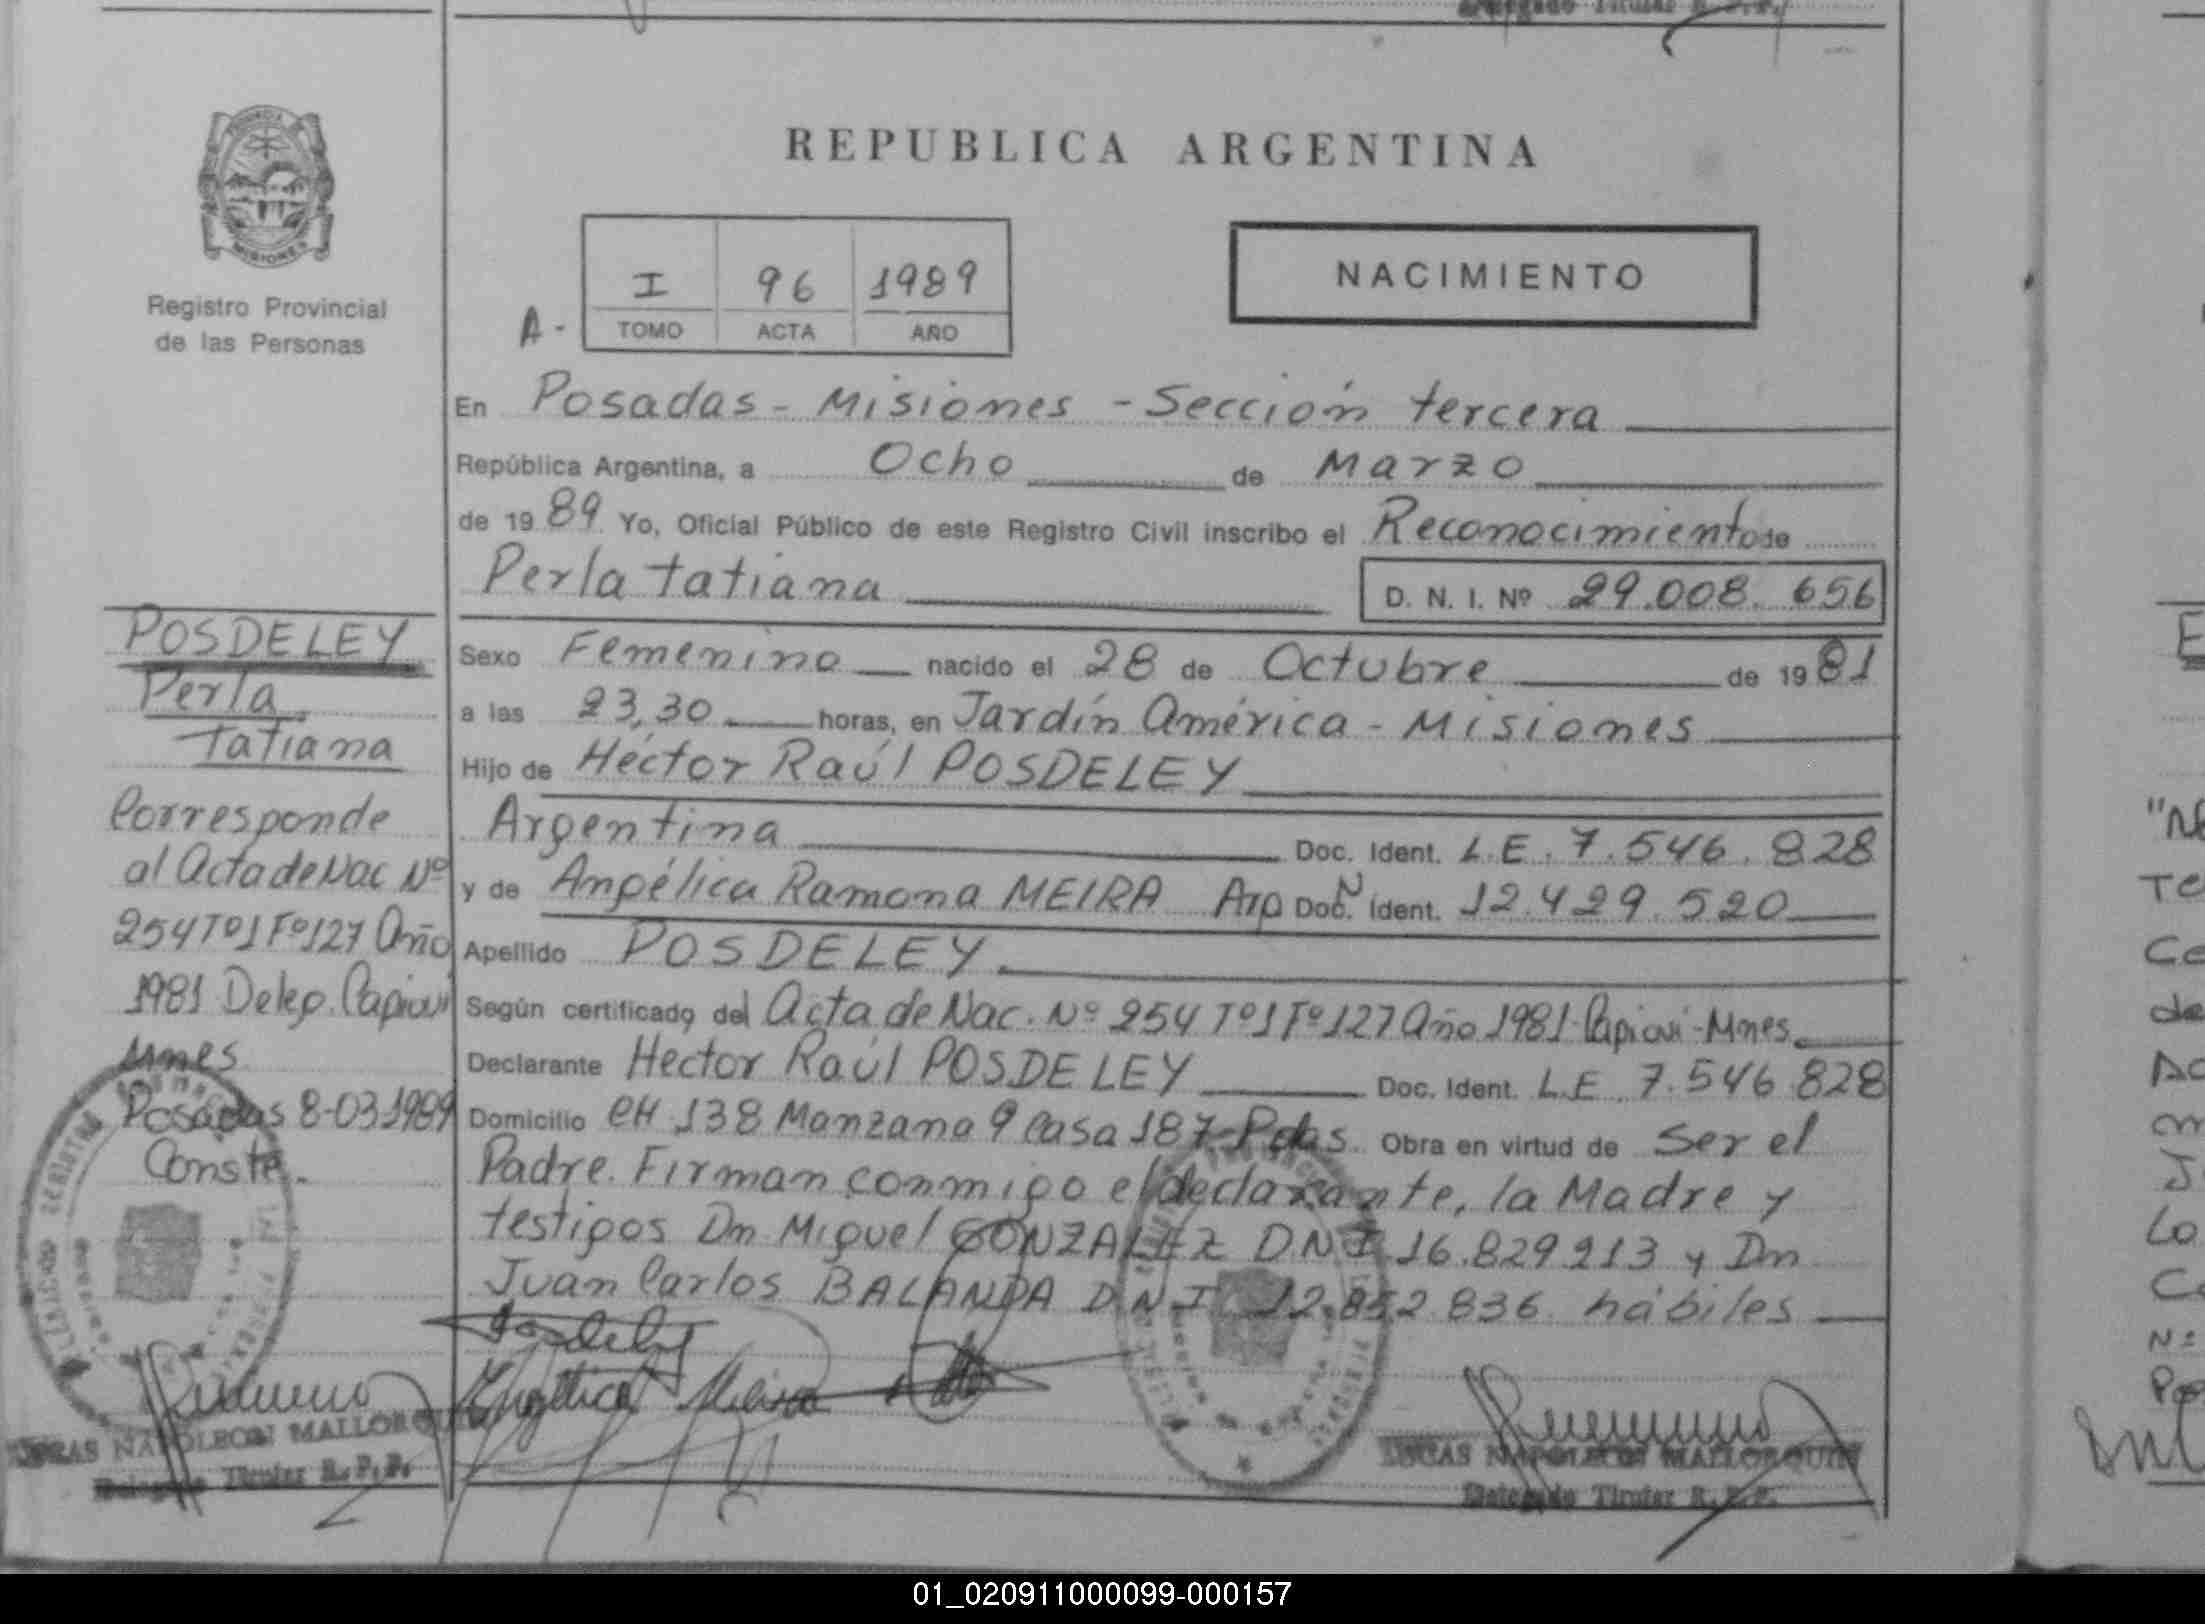 REPUBLICA ARGENTINA
MISIONES
Registro Provincial
de las Personas
I 96 1989
A- TOMO ACTA AÑO
NACIMIENTO
En Posadas - Misiones - Sección tercera
República Argentina, a Ocho de Marzo
de 1989 Yo, Oficial Público de este Registro Civil inscribo el Reconocimiento de
Perla tatiana D. N. I. Nº 29.008.656
Sexo Femenino nacido el 28 de Octubre de 1981
a las 23,30 horas, en Jardín América - Misiones
Hijo de Héctor Raúl POSDELEY
Argentina Doc. Ident. L.E. 7.546.828
y de Angélica Ramona MEIRA Arg Doc. Ident. 12.429.520
Apellido POSDELEY
Según certificado del Acta de Nac. Nº 254 Tº1 Fº127 Año 1981-Capiovi-Mnes.
Declarante Hector Raúl POSDELEY Doc. Ident. L.E. 7.546.828
Domicilio CH 138 Manzana 9 Casa 187-Pdas. Obra en virtud de ser el
Padre. Firman conmigo el declarante, la Madre y
testigos Dn Miguel GONZALEZ D.N.I. 16.829213 y Dn
Juan Carlos BALANDA D.N.I. 12.852.836 hábiles
POSDELEY
Perla
Tatiana
Corresponde
al Acta de Nac Nº
254 Tº1 Fº127 Año
1981 Deleg. Capiovi
Mnes
Posadas 8-03-1989
Conste.
Angelica Meira
LUCAS NAPOLEON MALLORQUIN
Delegado Titular R.P.P.
LUCAS NAPOLEON MALLORQUIN
Delegado Titular R.P.P.
01_020911000099-000157